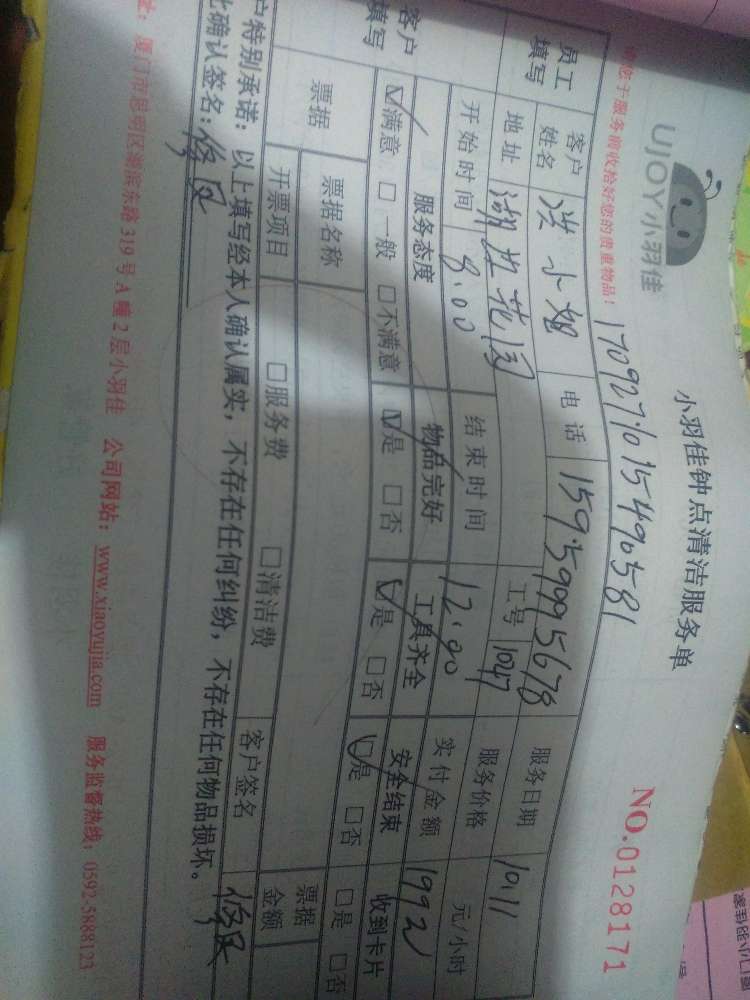 UJOY小羽佳
小羽佳钟点清洁服务单
NO.0128171
请您于服务前收拾好您的贵重物品!
170927101549058 1
员工填写 客户姓名 洪小姐 电话 15959995678 服务日期 10.11
地址 湖 花园 工号 1047 服务价格 元/小时
开始时间 8:00 结束时间 12:00 实付金额 199元
客户填写 服务态度 物品完好 工具齐全 安全结束 收到卡片
☑满意 □一般 □不满意 ☑是 □否 ☑是 □否 ☑是 □否 □是 □否
票据 票据名称 票据金额
开票项目 □服务费 □清洁费 客户签名
户特别承诺:以上填写经本人确认属实,不存在任何纠纷,不存在任何物品损坏。
此确认签名:
址:厦门市思明区湖滨东路319号A幢2层小羽佳 公司网站:www.xiaoyujia.com 服务监督热线:0592-5888123